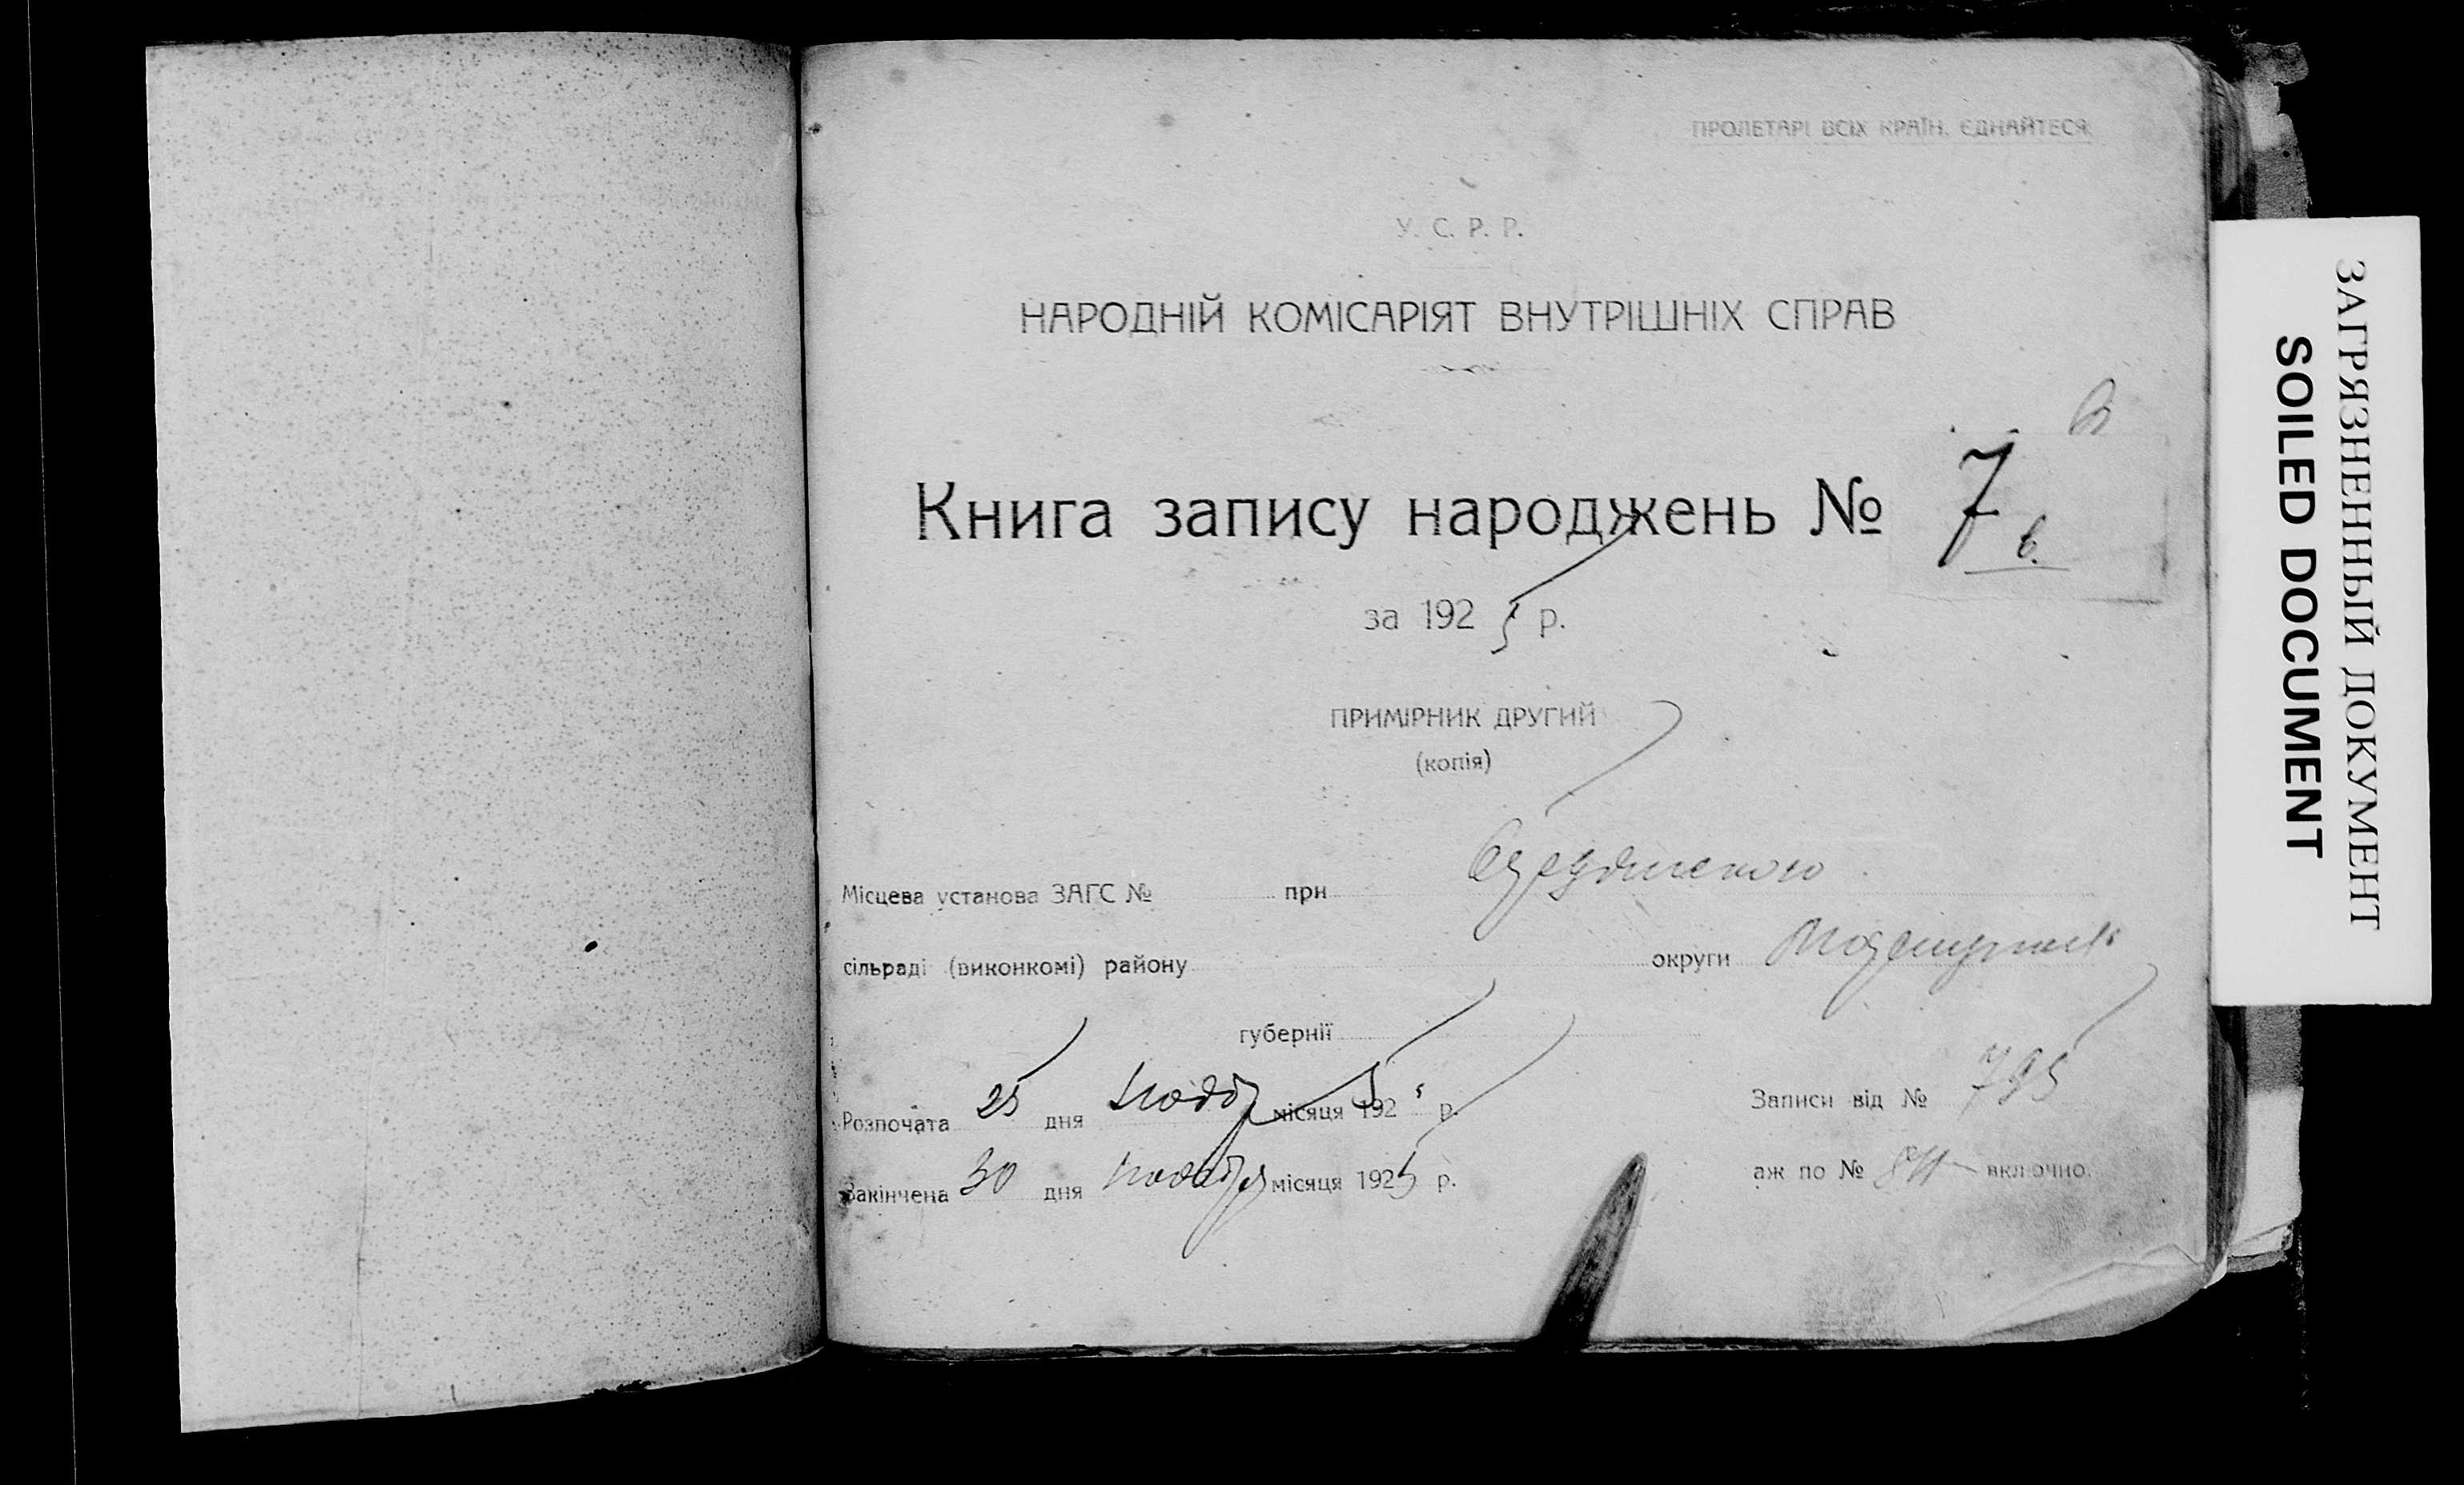 ПРОЛЕТАРІ ВСІХ КРАЇН, ЄДНАЙТЕСЯ.
У. С. Р. Р.
НАРОДНІЙ КОМІСАРІЯТ ВНУТРІШНІХ СПРАВ
Книга запису народжень № 7
за 1925 р.
ПРИМІРНИК ДРУГИЙ
(копія)
Місцева установа ЗАГС № при
сільраді (виконкомі) району округи
губернії
Розпочата 25 дня місяця 192 р.
Закінчена 30 дня ноября місяця 1925 р.
Записи від № 795
аж по № включно.
ЗАГРЯЗНЕННЫЙ ДОКУМЕНТ
SOILED DOCUMENT